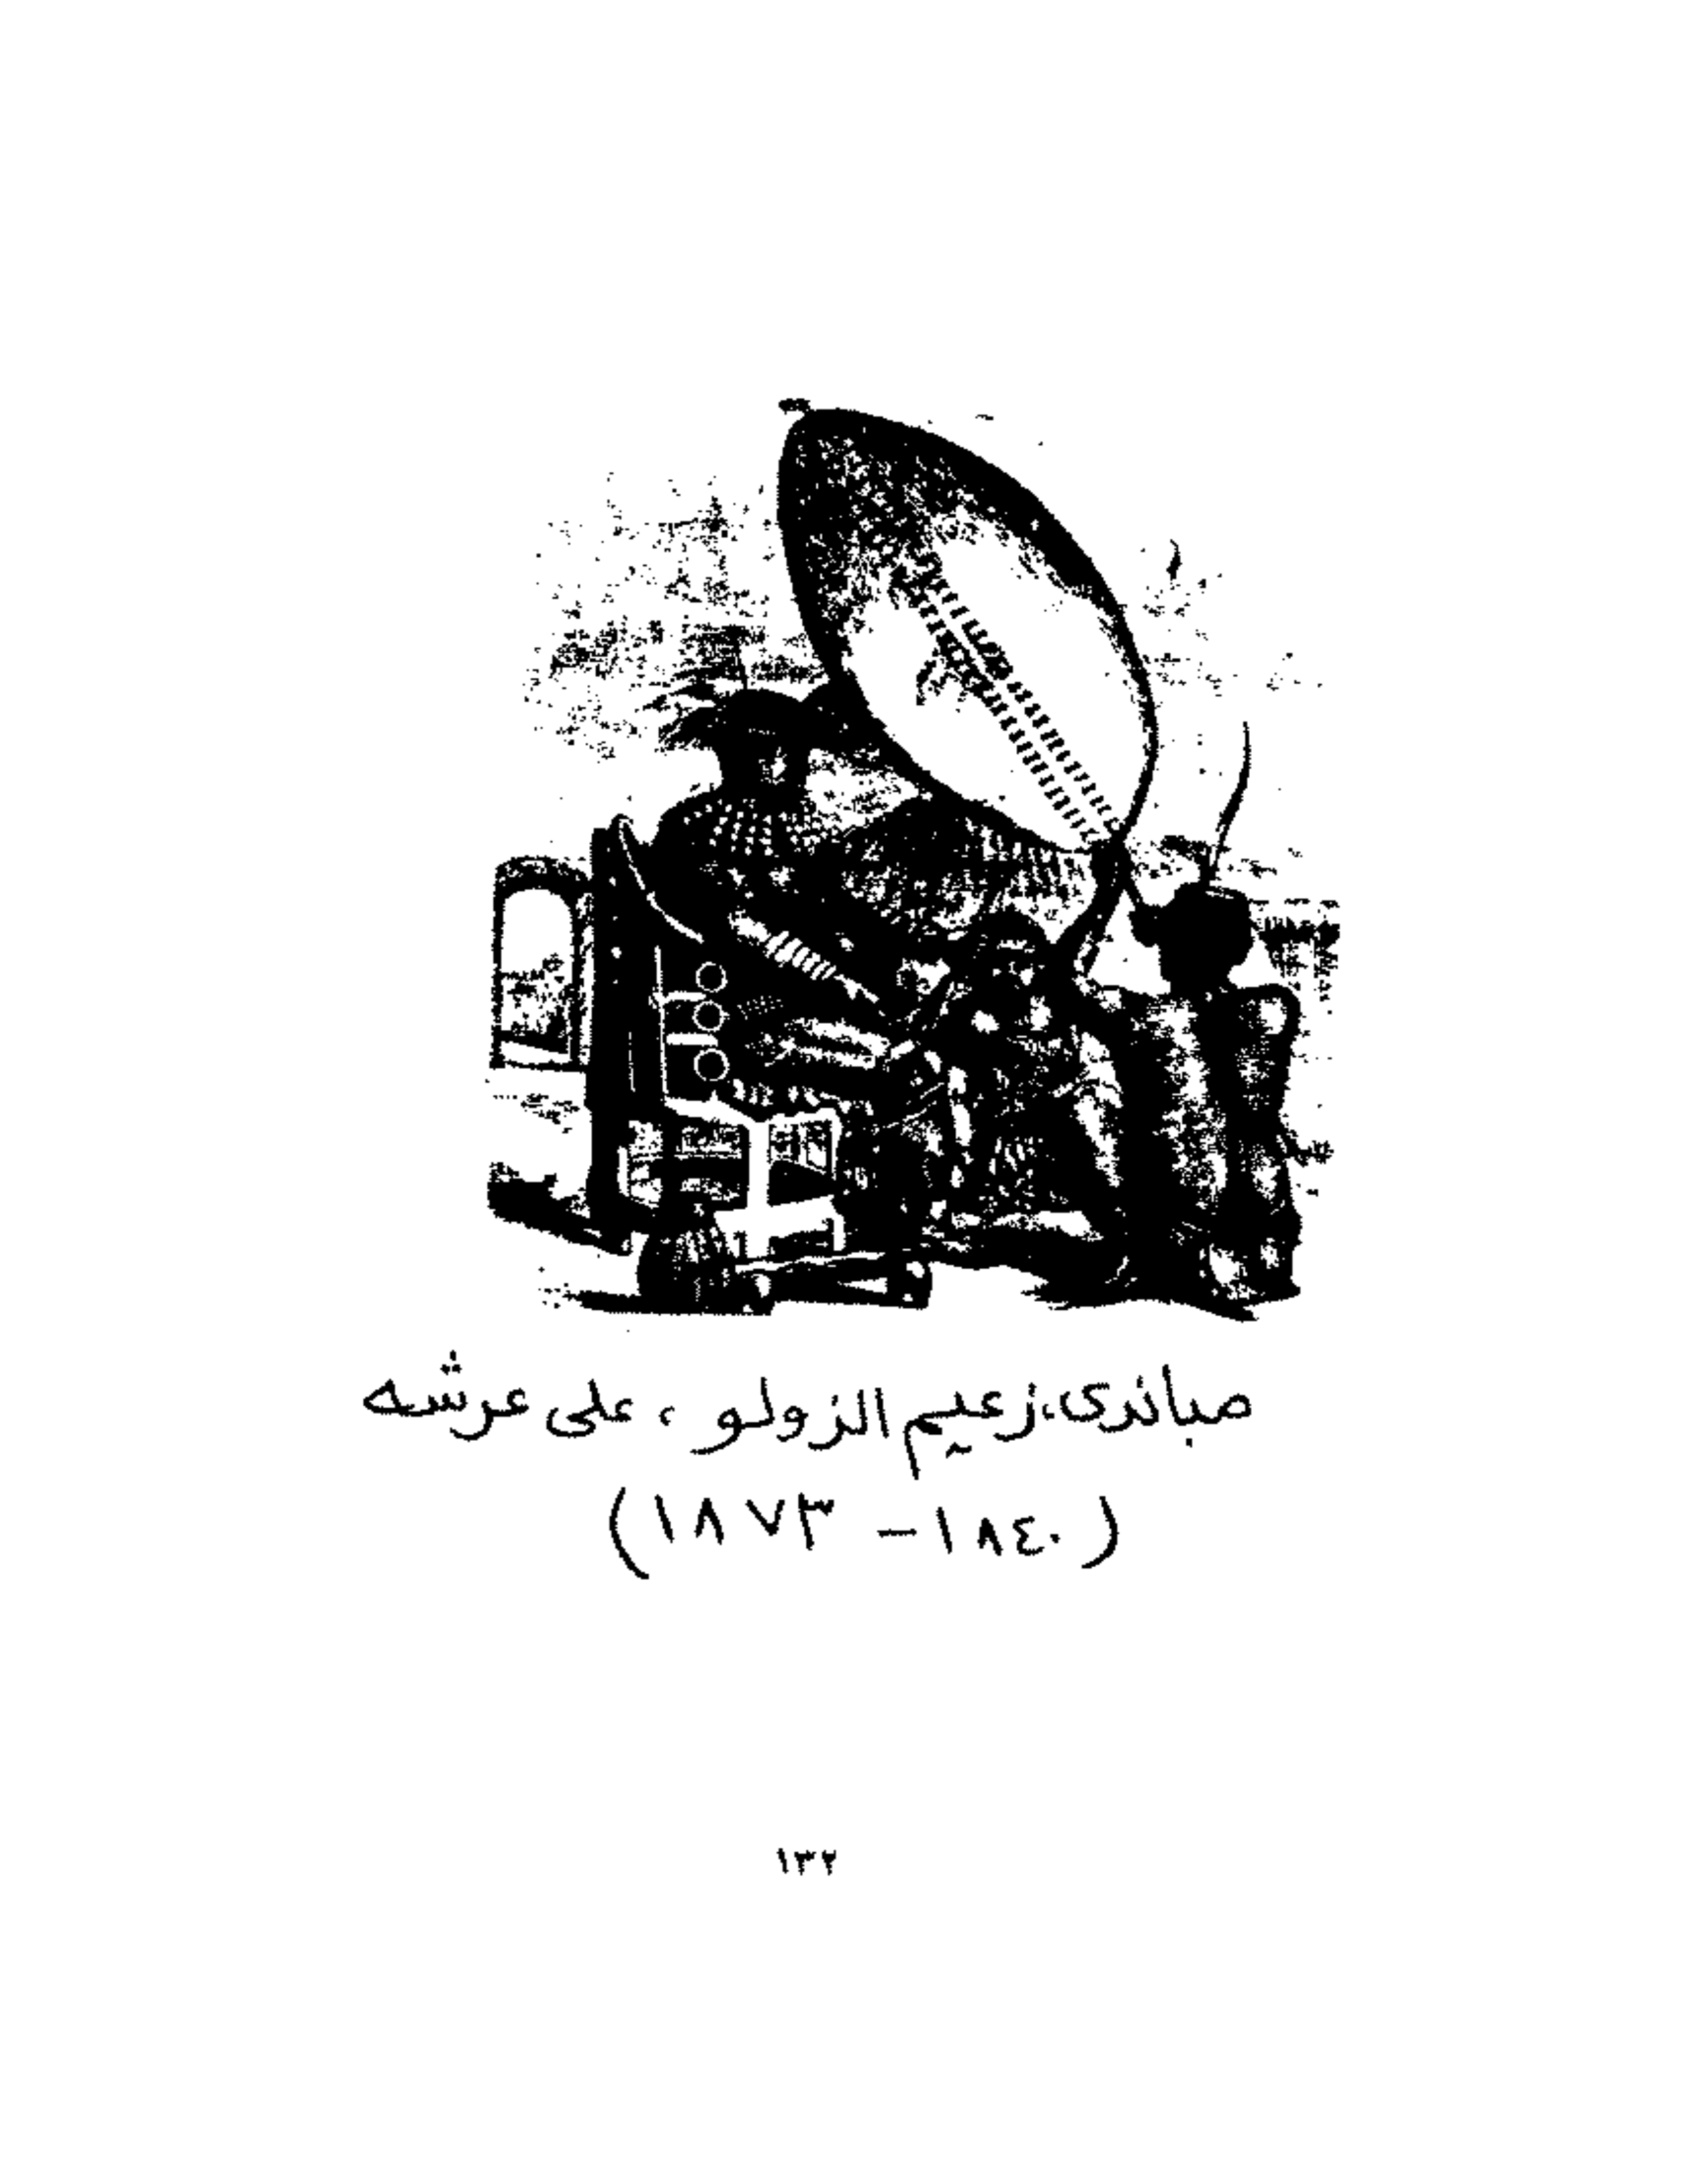 صباندى، زعيم الزولو، على عرشه
(١٨٤٠ – ١٨٧٣)
١٣٢